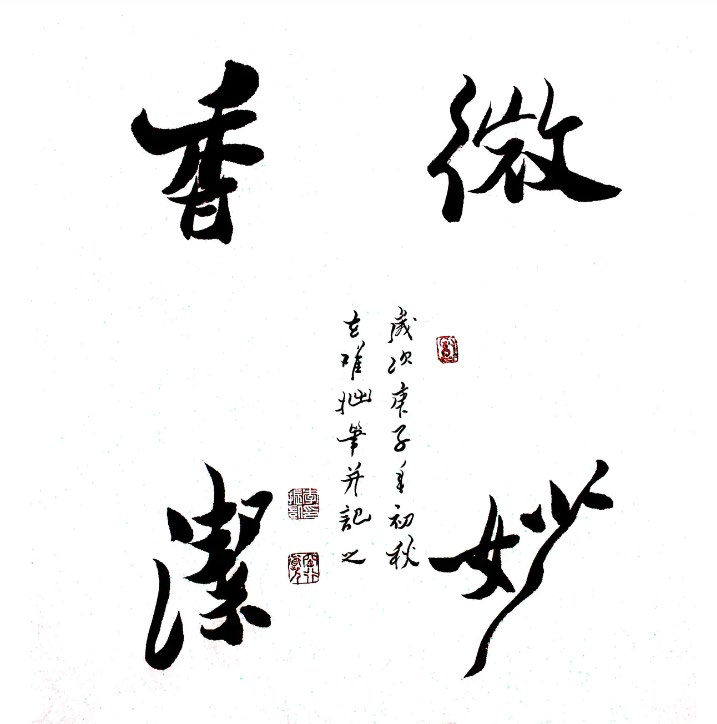 微妙
香潔
歲次庚子年初秋
拙筆并記之